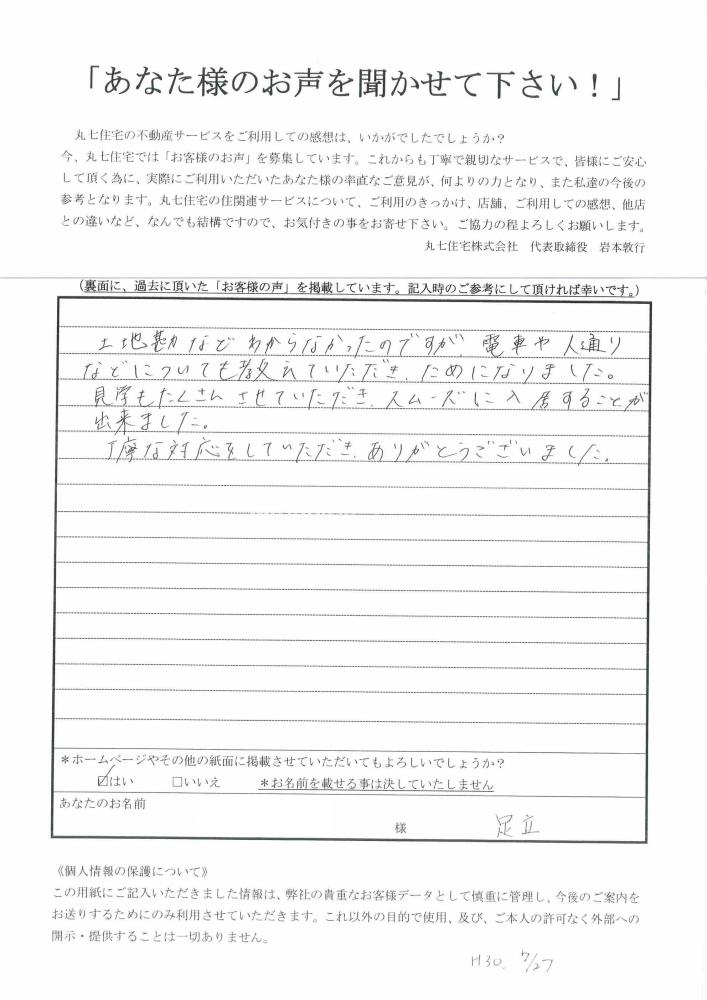 「あなた様のお声を聞かせて下さい！」
丸七住宅の不動産サービスをご利用しての感想は、いかがでしたでしょうか？
今、丸七住宅では「お客様のお声」を募集しています。これからも丁寧で親切なサービスで、皆様にご安心
して頂く為に、実際にご利用いただいたあなた様の率直なご意見が、何よりの力となり、また私達の今後の
参考となります。丸七住宅の住関連サービスについて、ご利用のきっかけ、店舗、ご利用しての感想、他店
との違いなど、なんでも結構ですので、お気付きの事をお寄せ下さい。ご協力の程よろしくお願いします。
丸七住宅株式会社　代表取締役　岩本敦行
（裏面に、過去に頂いた「お客様の声」を掲載しています。記入時のご参考にして頂ければ幸いです。）
土地勘などわからなかったのですが、電車や人通り
などについても教えていただき、ためになりました。
見学もたくさんさせていただき、スムーズに入居することが
出来ました。
丁寧な対応をしていただき、ありがとうございました。
＊ホームページやその他の紙面に掲載させていただいてもよろしいでしょうか？
☑はい　□いいえ　＊お名前を載せる事は決していたしません
あなたのお名前
様　足立
《個人情報の保護について》
この用紙にご記入いただきました情報は、弊社の貴重なお客様データとして慎重に管理し、今後のご案内を
お送りするためにのみ利用させていただきます。これ以外の目的で使用、及び、ご本人の許可なく外部への
開示・提供することは一切ありません。
H30. 7/27